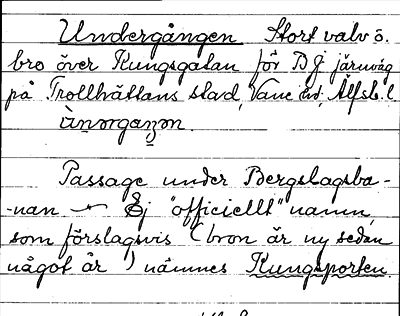 Undergången Stort valv ö.
bro över Kungsgatan för BJ järnväg
på Trollhättans stad, Väne hd, Älfsb. l.
Passage under Bergslagsba-
-nan — Ej "officiellt" namn,
som förslagsvis (bron är ny sedan
något år) nämnes Kungsporten.